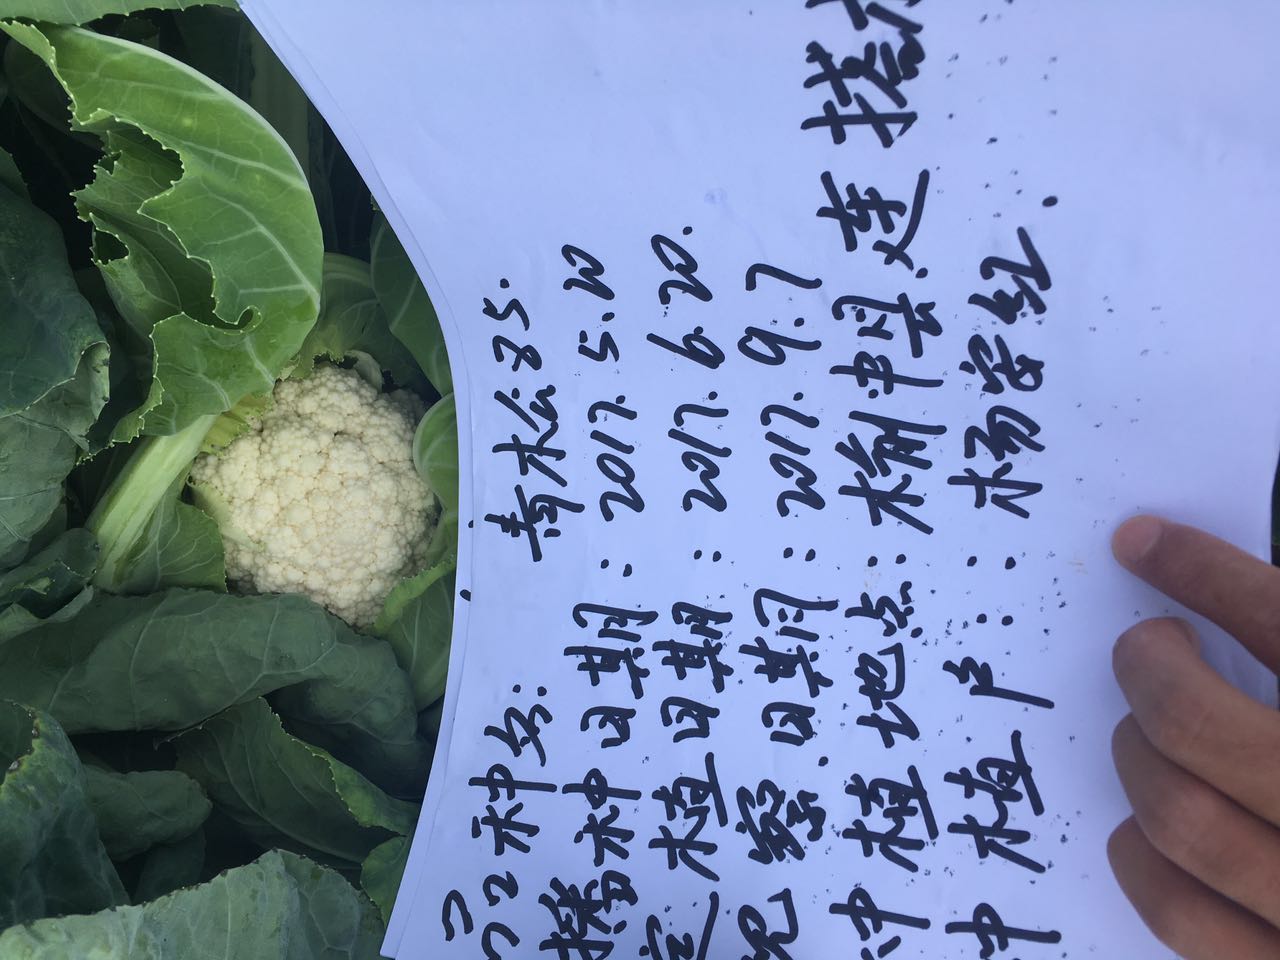 品种名: 青松85.
播种日期: 2017.5.20
定植日期: 2017.6.20.
观察日期: 2017.9.7
种植地点: 榆中县.连搭
种植户: 杨红.